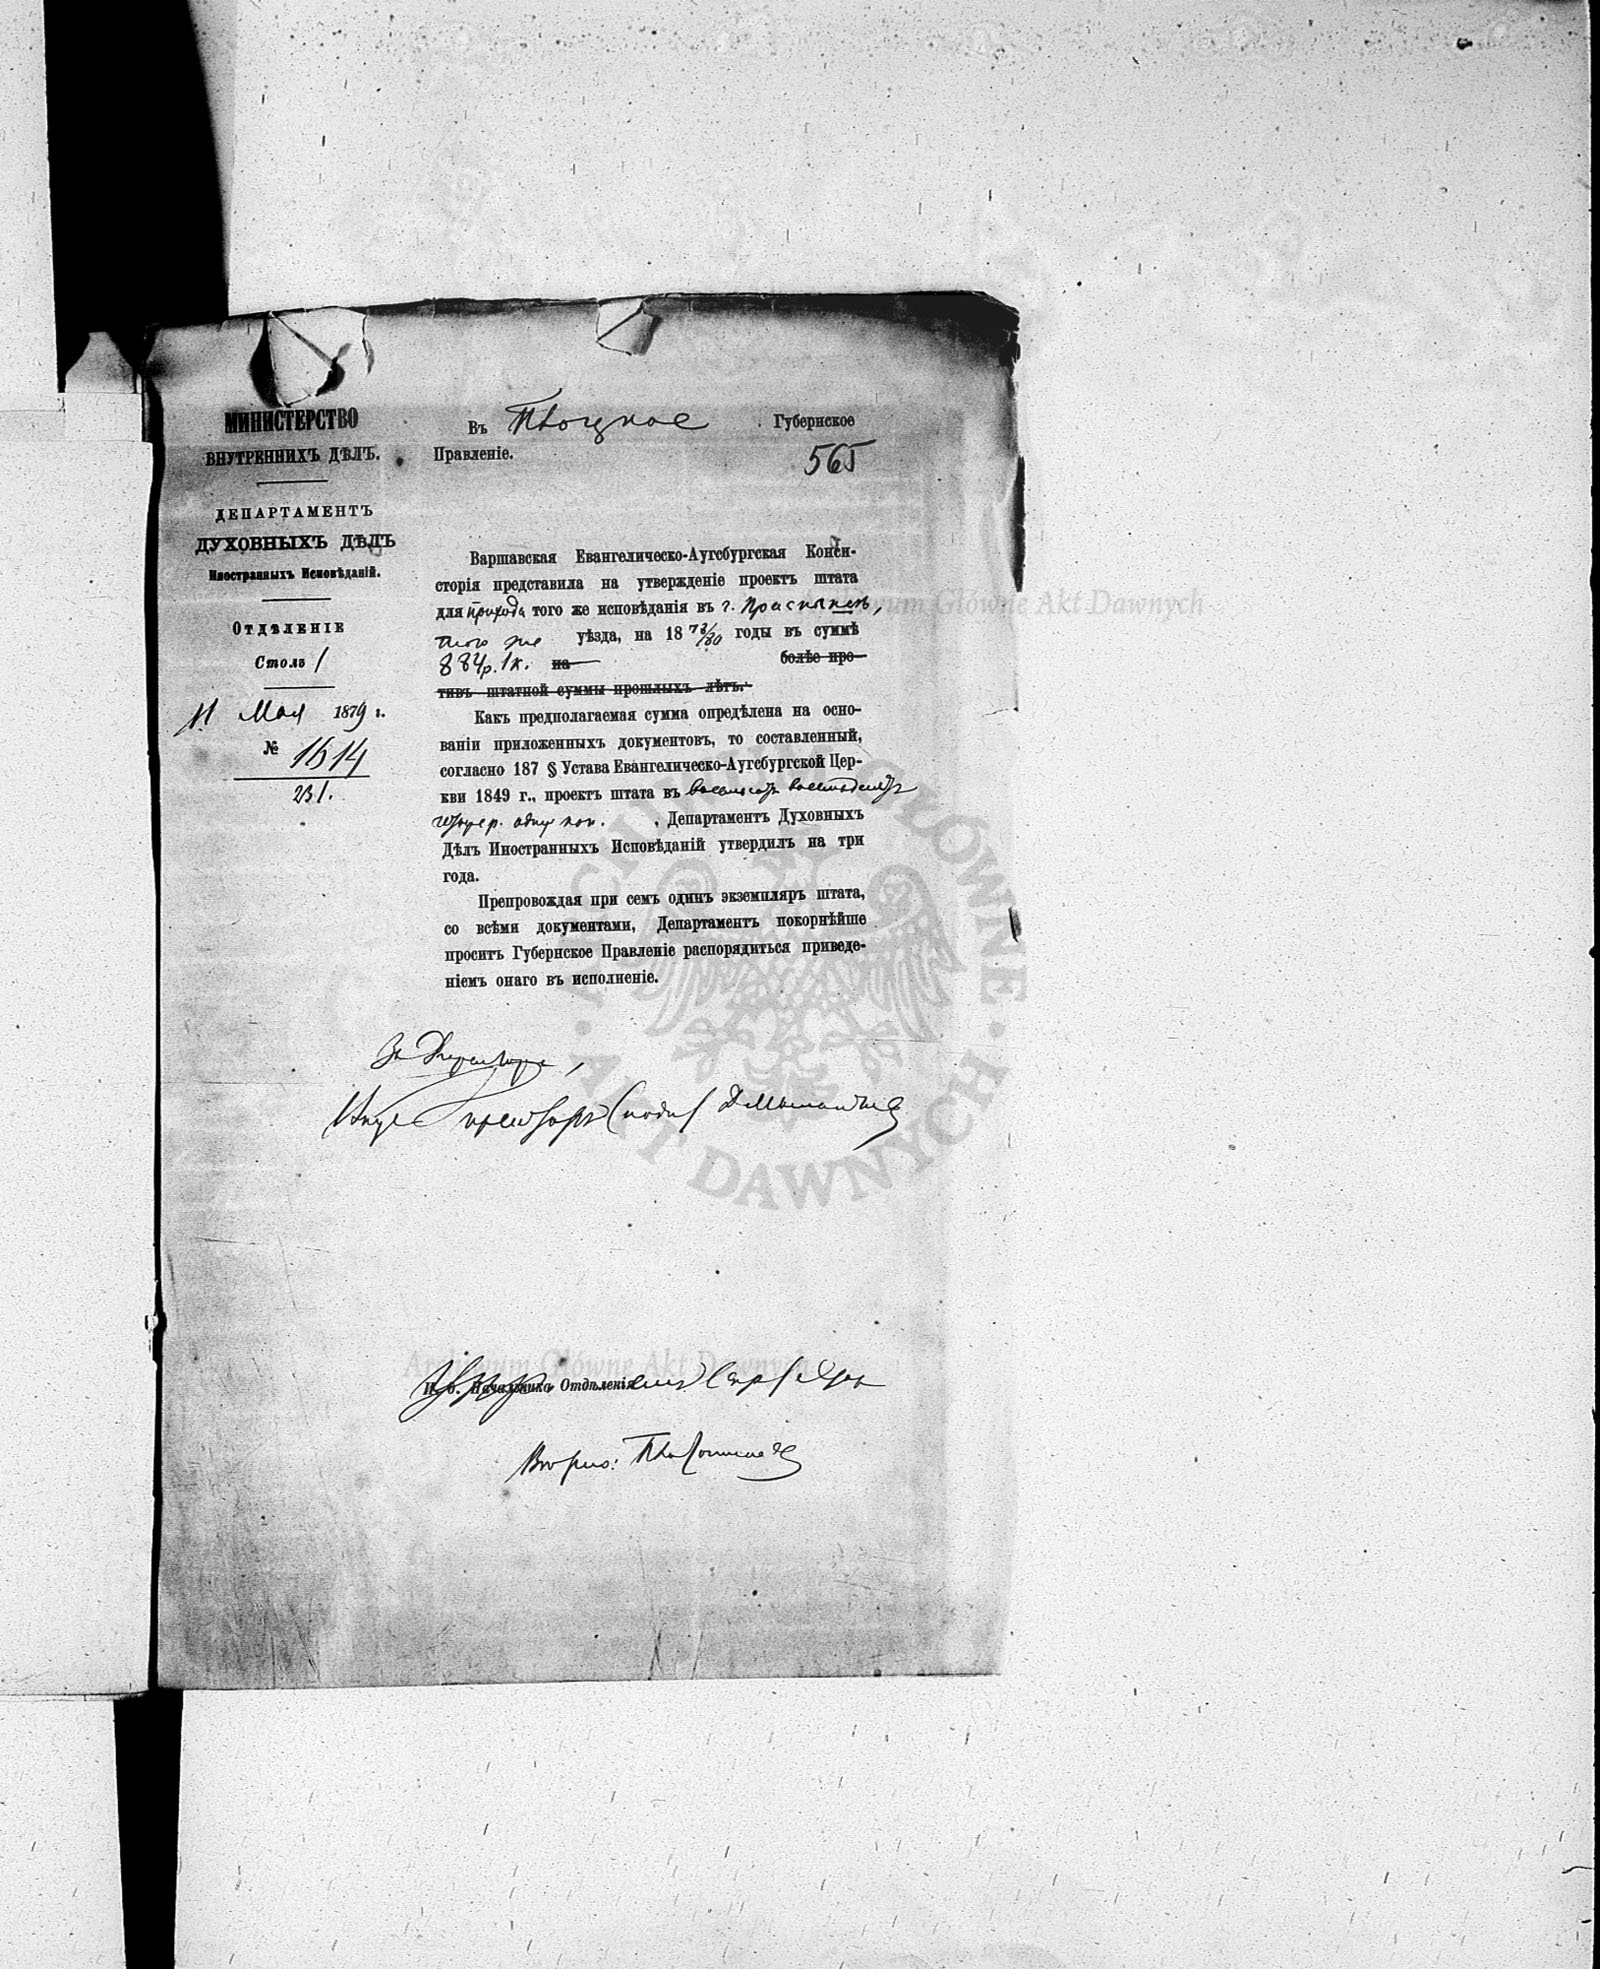 МИНИСТЕРСТВО
ВНУТРЕННИХЪ ДѢЛЪ.
ДЕПАРТАМЕНТЪ
ДУХОВНЫХЪ ДѢЛЪ
Иностранныхъ Исповѣданій.
ОТДѢЛЕНІЕ
Столъ 1
11 Мая 1879 г.
№ 1614
231.
Въ Плоцкое Губернское
Правленіе.
565
Варшавская Евангелическо-Аугсбургская Конси-
сторія представила на утвержденіе проектъ штата
для прихода того же исповѣданія въ г. Праснышѣ,
того же уѣзда, на 18 78/80 годы въ суммѣ
884р. 1к. на болѣе про-
тивъ штатной суммы прошлыхъ лѣтъ.
Какъ предполагаемая сумма опредѣлена на осно-
ваніи приложенныхъ документовъ, то составленный,
согласно 187 § Устава Евангелическо-Аугсбургской Цер-
кви 1849 г., проектъ штата въ восемьсотъ восемьдесятъ
четыре р. одну коп. , Департаментъ Духовныхъ
Дѣлъ Иностранныхъ Исповѣданій утвердилъ на три
года.
Препровождая при семъ одинъ экземпляръ штата,
со всѣми документами, Департаментъ покорнѣйше
проситъ Губернское Правленіе распорядиться приведе-
ніемъ онаго въ исполненіе.
За Директора,
Вице Директоръ (подп)
И. о. Начальника Отдѣленія
Вѣрно:
Archiwum Główne Akt Dawnych
Archiwum Główne Akt Dawnych
ARCHIWUM GŁÓWNE · AKT DAWNYCH ·